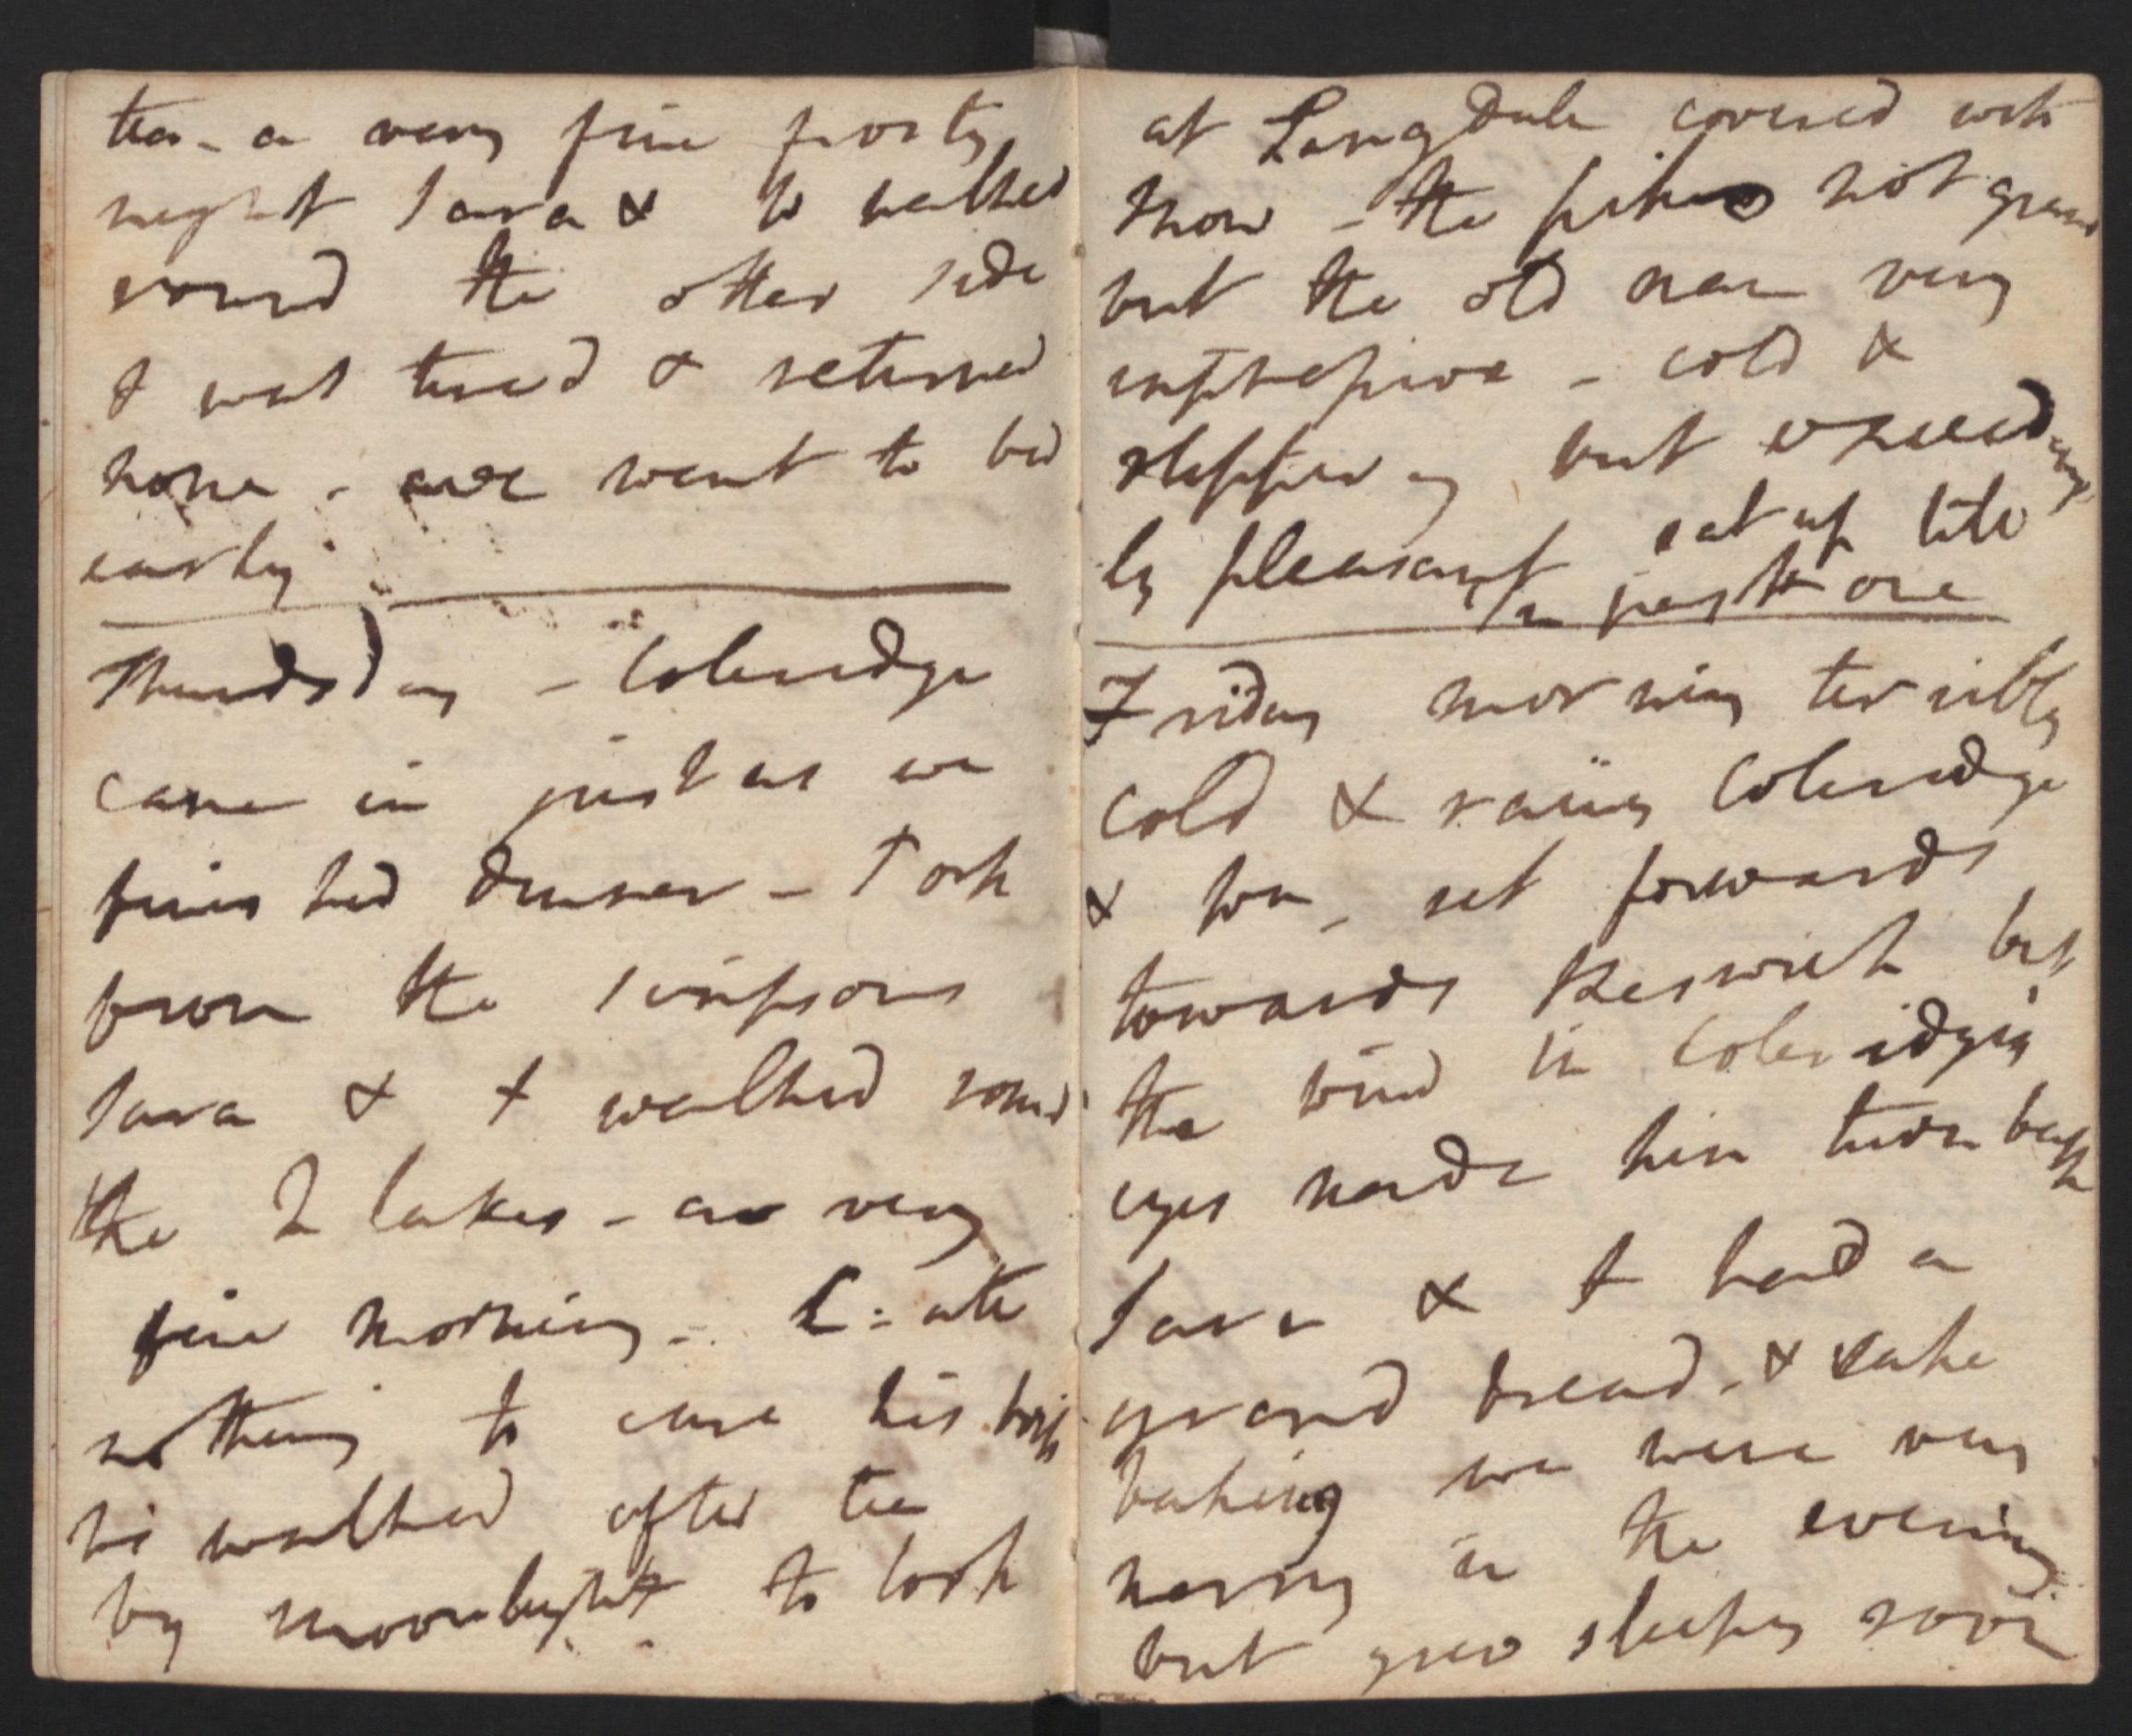 tea - a very fine frosty
night Sara & W walked
round the other side
I was tired & returned
home - we went to bed
early
Thursday - Coleridge
came in just as we
finished dinner - Pork
from the Simpsons
Sara & I walked round
the 2 lakes - a very
fine morning - C: ate
nothing to cure his boils
we walked after tea
by moonlight to look
at LangDale covered with
snow - the pikes not grand
but the old man very
impressive - cold &
slippery but exceeding
ly pleasant sat up till
past one
Friday morning terribly
cold & rainy Coleridge
& Wm set forwards
towards Keswick but
the wind in Coleridge's
eyes made him turn back
Sara & I had a
grand bread & cake
baking we were very
merry in the evening
but grew sleepy soon